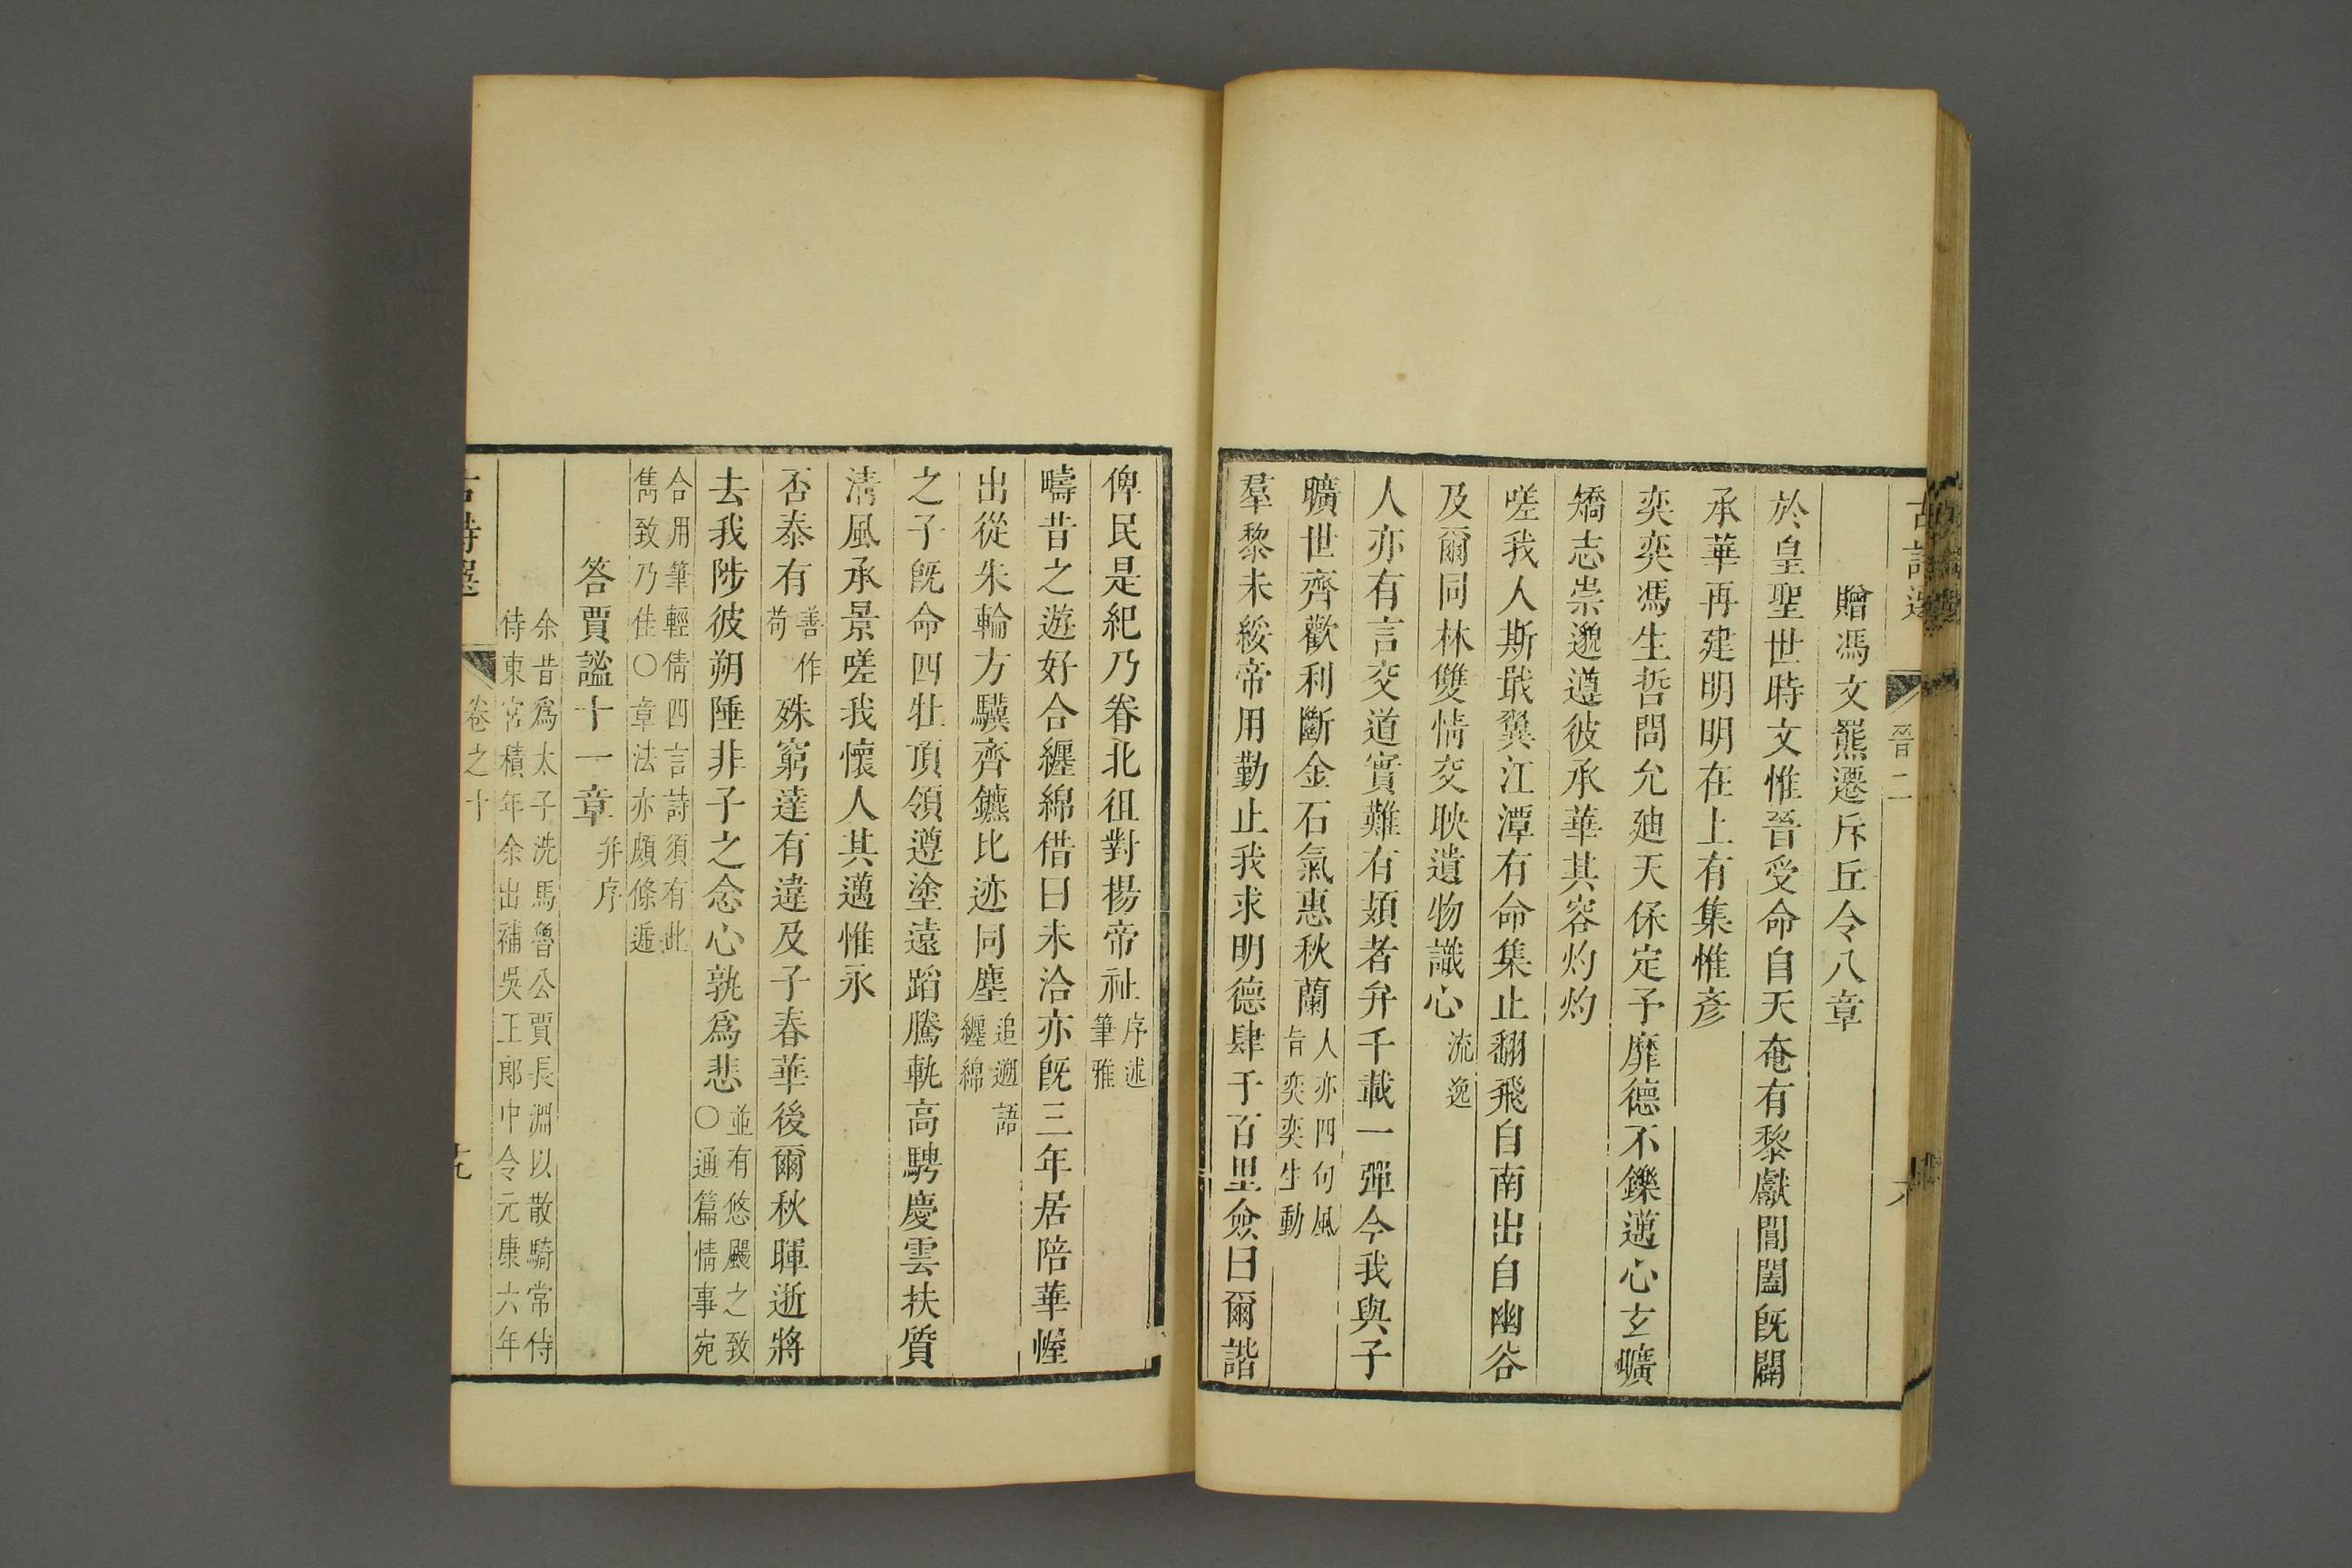 古詩選 晉二
贈馮文羆遷斥丘令八章
於皇聖世時文惟晉受命自天奄有黎獻閶闔既闢
承華再建明明在上有集惟彥
奕奕馮生哲問允迪天保定子靡德不鑠邁心玄曠
矯志崇邈遵彼承華其容灼灼
嗟我人斯戢翼江潭有命集止翻飛自南出自幽谷
及爾同林雙情交映遺物識心流逸
人亦有言交道實難有頍者弁千載一彈今我與子
曠世齊歡利斷金石氣惠秋蘭人亦四句風旨奕奕生動
羣黎未綏帝用勤止我求明德肆于百里僉曰爾諧
俾民是紀乃眷北徂對揚帝祉序述筆雅
疇昔之遊好合纏綿借曰未洽亦既三年居陪華幄
出從朱輪方驥齊鑣比迹同塵追遡語纏綿
之子既命四牡項領遵塗遠蹈騰軌高騁慶雲扶質
清風承景嗟我懷人其邁惟永
否泰有善作苟殊窮達有違及子春華後爾秋暉逝將
去我陟彼朔陲非子之念心孰爲悲並有悠颺之致〇通篇情事宛
合用筆輕倩四言詩須有此雋致乃佳〇章法亦頗條遞
答賈謐十一章并序
余昔爲太子洗馬魯公賈長淵以散騎常侍
侍東宮積年余出補吳王郎中令元康六年
古詩選 卷之十